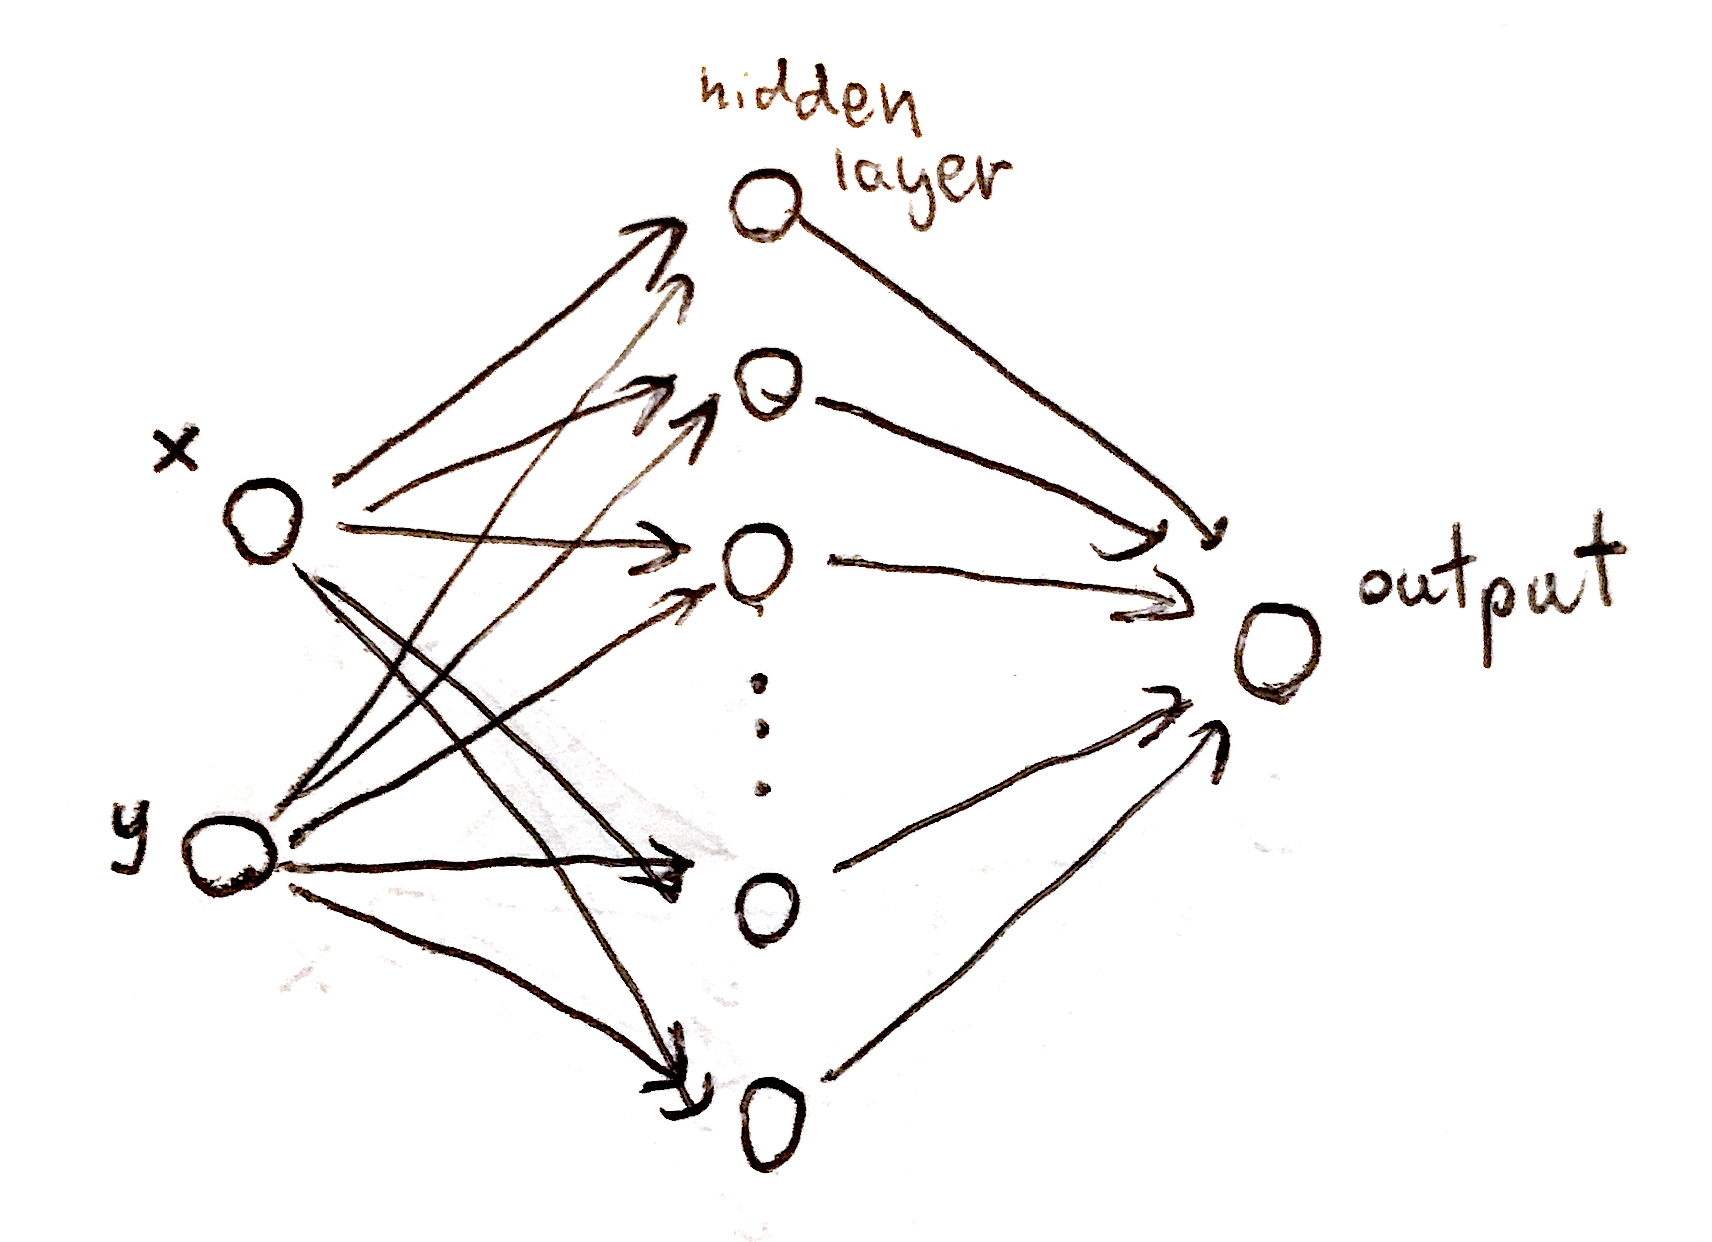 hidden
layer
x
output
y